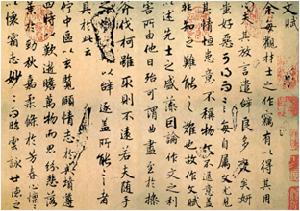 文賦
余每觀材士之作竊有以得其用
心夫其放言遣辭良多變矣妍
蚩好惡可得而言每自屬文尤見
其情恒患意不稱物文不逮意蓋
非知之難能之難也故作文賦
以述先士之盛藻因論作文之利
害所由他日殆可謂曲盡至於操
伐柯雖取則不遠若夫隨手
辭逮蓋所能言者
具於此云
佇中區以玄覽頤情志於典墳遵
四時以歎逝瞻萬物而思紛悲落
葉勁秋嘉柔條於芳春心懍
以懷霜志眇而臨雲詠世德之